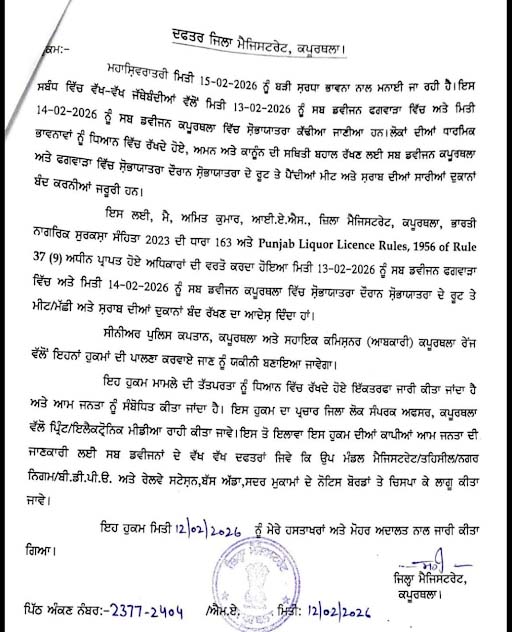 ਦਫਤਰ ਜਿਲਾ ਮੈਜਿਸਟਰੇਟ, ਕਪੂਰਥਲਾ।
ਕਮ:-
ਮਹਾਸ਼ਿਵਰਾਤਰੀ ਮਿਤੀ 15-02-2026 ਨੂੰ ਬੜੀ ਸ਼ਰਧਾ ਭਾਵਨਾ ਨਾਲ ਮਨਾਈ ਜਾ ਰਹੀ ਹੈ।ਇਸ
ਸਬੰਧ ਵਿੱਚ ਵੱਖ-ਵੱਖ ਜੱਥੇਬੰਦੀਆਂ ਵੱਲੋਂ ਮਿਤੀ 13-02-2026 ਨੂੰ ਸਬ ਡਵੀਜਨ ਫਗਵਾੜਾ ਵਿੱਚ ਅਤੇ ਮਿਤੀ
14-02-2026 ਨੂੰ ਸਬ ਡਵੀਜਨ ਕਪੂਰਥਲਾ ਵਿੱਚ ਸ਼ੋਭਾਯਾਤਰਾ ਕੱਢੀਆ ਜਾਣੀਆ ਹਨ।ਲੋਕਾਂ ਦੀਆਂ ਧਾਰਮਿਕ
ਭਾਵਨਾਵਾਂ ਨੂੰ ਧਿਆਨ ਵਿੱਚ ਰੱਖਦੇ ਹੋਏ, ਅਮਨ ਅਤੇ ਕਾਨੂੰਨ ਦੀ ਸਥਿਤੀ ਬਹਾਲ ਰੱਖਣ ਲਈ ਸਬ ਡਵੀਜਨ ਕਪੂਰਥਲਾ
ਅਤੇ ਫਗਵਾੜਾ ਵਿੱਚ ਸ਼ੋਭਾਯਾਤਰਾ ਦੌਰਾਨ ਸ਼ੋਭਾਯਾਤਰਾ ਦੇ ਰੂਟ ਤੇ ਪੈਂਦੀਆਂ ਮੀਟ ਅਤੇ ਸ਼ਰਾਬ ਦੀਆਂ ਸਾਰੀਆਂ ਦੁਕਾਨਾਂ
ਬੰਦ ਕਰਨੀਆਂ ਜਰੂਰੀ ਹਨ।
ਇਸ ਲਈ, ਮੈਂ, ਅਮਿਤ ਕੁਮਾਰ, ਆਈ.ਏ.ਐਸ., ਜ਼ਿਲਾ ਮੈਜਿਸਟਰੇਟ, ਕਪੂਰਥਲਾ, ਭਾਰਤੀ
ਨਾਗਰਿਕ ਸੁਰਕਸ਼ਾ ਸੰਹਿਤਾ 2023 ਦੀ ਧਾਰਾ 163 ਅਤੇ Punjab Liquor Licence Rules, 1956 of Rule
37 (9) ਅਧੀਨ ਪ੍ਰਾਪਤ ਹੋਏ ਅਧਿਕਾਰਾਂ ਦੀ ਵਰਤੋਂ ਕਰਦਾ ਹੋਇਆ ਮਿਤੀ 13-02-2026 ਨੂੰ ਸਬ ਡਵੀਜਨ ਫਗਵਾੜਾ
ਵਿੱਚ ਅਤੇ ਮਿਤੀ 14-02-2026 ਨੂੰ ਸਬ ਡਵੀਜਨ ਕਪੂਰਥਲਾ ਵਿੱਚ ਸ਼ੋਭਾਯਾਤਰਾ ਦੌਰਾਨ ਸ਼ੋਭਾਯਾਤਰਾ ਦੇ ਰੂਟ ਤੇ
ਮੀਟ/ਮੱਛੀ ਅਤੇ ਸ਼ਰਾਬ ਦੀਆਂ ਦੁਕਾਨਾਂ ਬੰਦ ਰੱਖਣ ਦਾ ਆਦੇਸ਼ ਦਿੰਦਾ ਹਾਂ।
ਸੀਨੀਅਰ ਪੁਲਿਸ ਕਪਤਾਨ, ਕਪੂਰਥਲਾ ਅਤੇ ਸਹਾਇਕ ਕਮਿਸ਼ਨਰ (ਆਬਕਾਰੀ) ਕਪੂਰਥਲਾ ਰੇਂਜ
ਵੱਲੋਂ ਇਹਨਾਂ ਹੁਕਮਾਂ ਦੀ ਪਾਲਣਾ ਕਰਵਾਏ ਜਾਣ ਨੂੰ ਯਕੀਨੀ ਬਣਾਇਆ ਜਾਵੇਗਾ।
ਇਹ ਹੁਕਮ ਮਾਮਲੇ ਦੀ ਤੱਤਪਰਤਾ ਨੂੰ ਧਿਆਨ ਵਿੱਚ ਰੱਖਦੇ ਹੋਏ ਇੱਕਤਰਫਾ ਜਾਰੀ ਕੀਤਾ ਜਾਂਦਾ ਹੈ
ਅਤੇ ਆਮ ਜਨਤਾ ਨੂੰ ਸੰਬੋਧਿਤ ਕੀਤਾ ਜਾਂਦਾ ਹੈ। ਇਸ ਹੁਕਮ ਦਾ ਪ੍ਰਚਾਰ ਜਿਲਾ ਲੋਕ ਸੰਪਰਕ ਅਫਸਰ, ਕਪੂਰਥਲਾ
ਵੱਲੋ ਪ੍ਰਿੰਟ/ਇਲੈਕਟ੍ਰੋਨਿਕ ਮੀਡੀਆ ਰਾਹੀ ਕੀਤਾ ਜਾਵੇ।ਇਸ ਤੋ ਇਲਾਵਾ ਇਸ ਹੁਕਮ ਦੀਆਂ ਕਾਪੀਆਂ ਆਮ ਜਨਤਾ ਦੀ
ਜਾਣਕਾਰੀ ਲਈ ਸਬ ਡਵੀਜਨਾਂ ਦੇ ਵੱਖ ਵੱਖ ਦਫਤਰਾਂ ਜਿਵੇ ਕਿ ਉਪ ਮੰਡਲ ਮੈਜਿਸਟਰੇਟ/ਤਹਿਸੀਲ/ਨਗਰ
ਨਿਗਮ/ਬੀ.ਡੀ.ਪੀ.ਓ. ਅਤੇ ਰੇਲਵੇ ਸਟੇਸ਼ਨ,ਬੱਸ ਅੱਡਾ,ਸਦਰ ਮੁਕਾਮਾਂ ਦੇ ਨੋਟਿਸ ਬੋਰਡਾਂ ਤੇ ਚਿਸਪਾ ਕੇ ਲਾਗੂ ਕੀਤਾ
ਜਾਵੇ।
ਇਹ ਹੁਕਮ ਮਿਤੀ 12/02/2026 ਨੂੰ ਮੇਰੇ ਹਸਤਾਖਰਾਂ ਅਤੇ ਮੋਹਰ ਅਦਾਲਤ ਨਾਲ ਜਾਰੀ ਕੀਤਾ
ਗਿਆ।
ਜਿਲ੍ਹਾ ਮੈਜਿਸਟਰੇਟ,
ਕਪੂਰਥਲਾ।
ਪਿੱਠ ਅੰਕਣ ਨੰਬਰ:-2377-2404 /ਐਮ.ਏ. ਮਿਤੀ: 12/02/2026